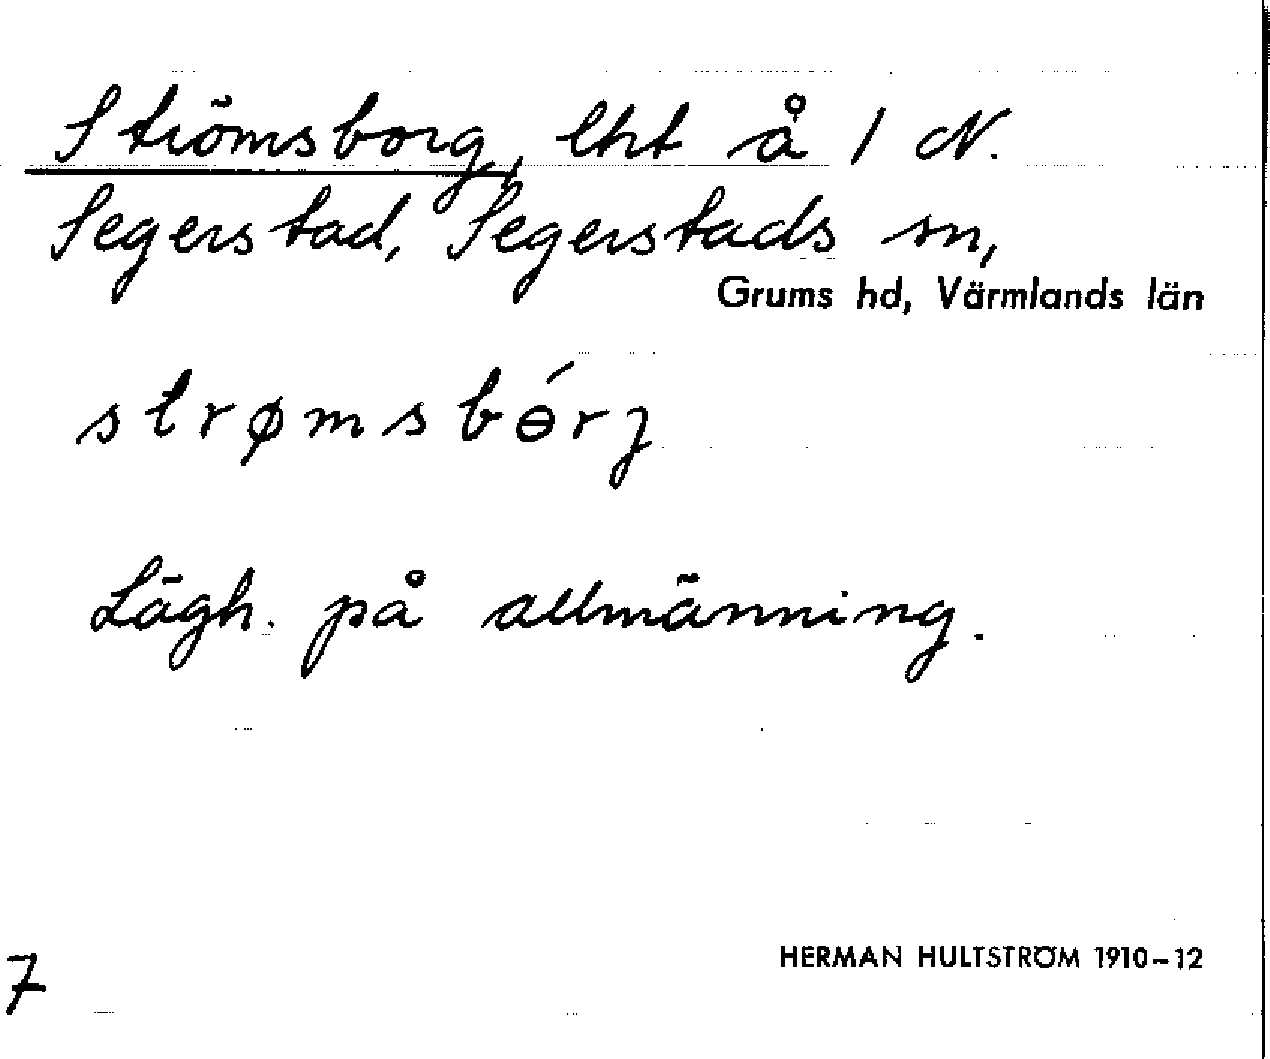 Strömsborg, lht å 1 N.
Segerstad, Segerstads sn,
Grums hd, Värmlands län
strømsbɵ́rj
Lägh. på allmänning.
HERMAN HULTSTRÖM 1910–12
7